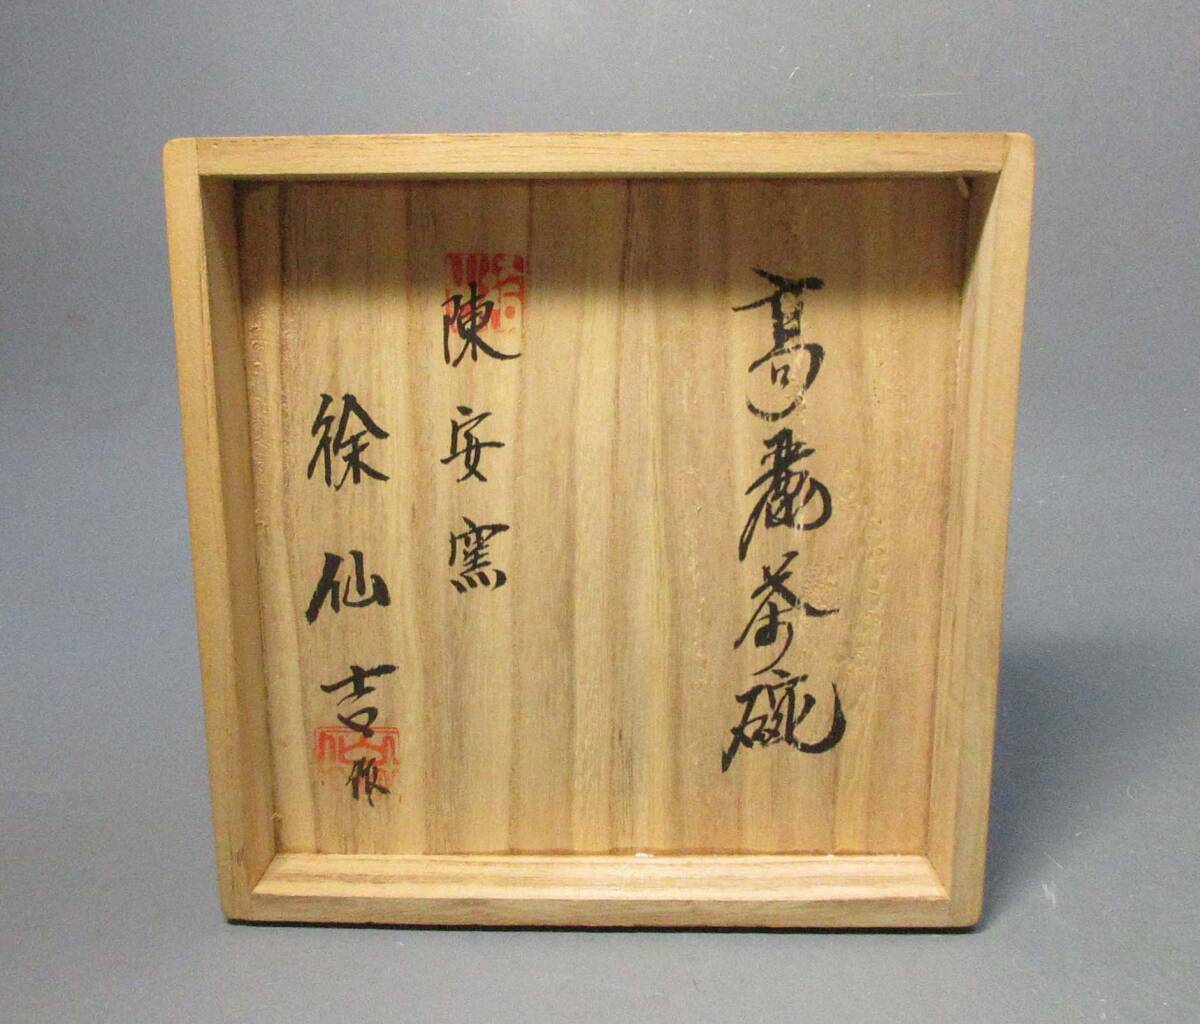 高麗茶碗
陳安窯
徐仙吉作